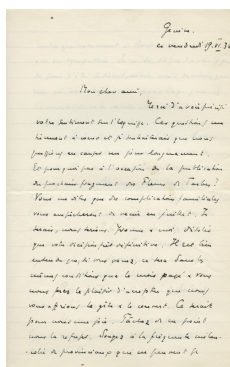 Genève.
ce vendredi 19.VI.36
Mon cher ami,
Merci d'avoir précisé
votre sentiment sur l'esquisse. Ces questions me
tiennent à cœur et je souhaiterais que nous
puissions en causer un jour longuement.
Et pourquoi pas à l'occasion de la publication
du prochain fragment des Fleurs de Tarbes?
Vous me dites que des complications familiales
vous empêcheront de venir en juillet. Je
serais, nous serions, Yvonne et moi, désolés
que votre décision fût définitive. Il est bien
entendu que, si vous venez, ce sera dans les
mêmes conditions que le mois passé et vous
nous ferez le plaisir d'accepter que nous
vous offrions le gîte et le couvert. Ce serait
pour nous une joie. Tâchez de ne point
nous la refuser. Songez à la
de provinciaux que